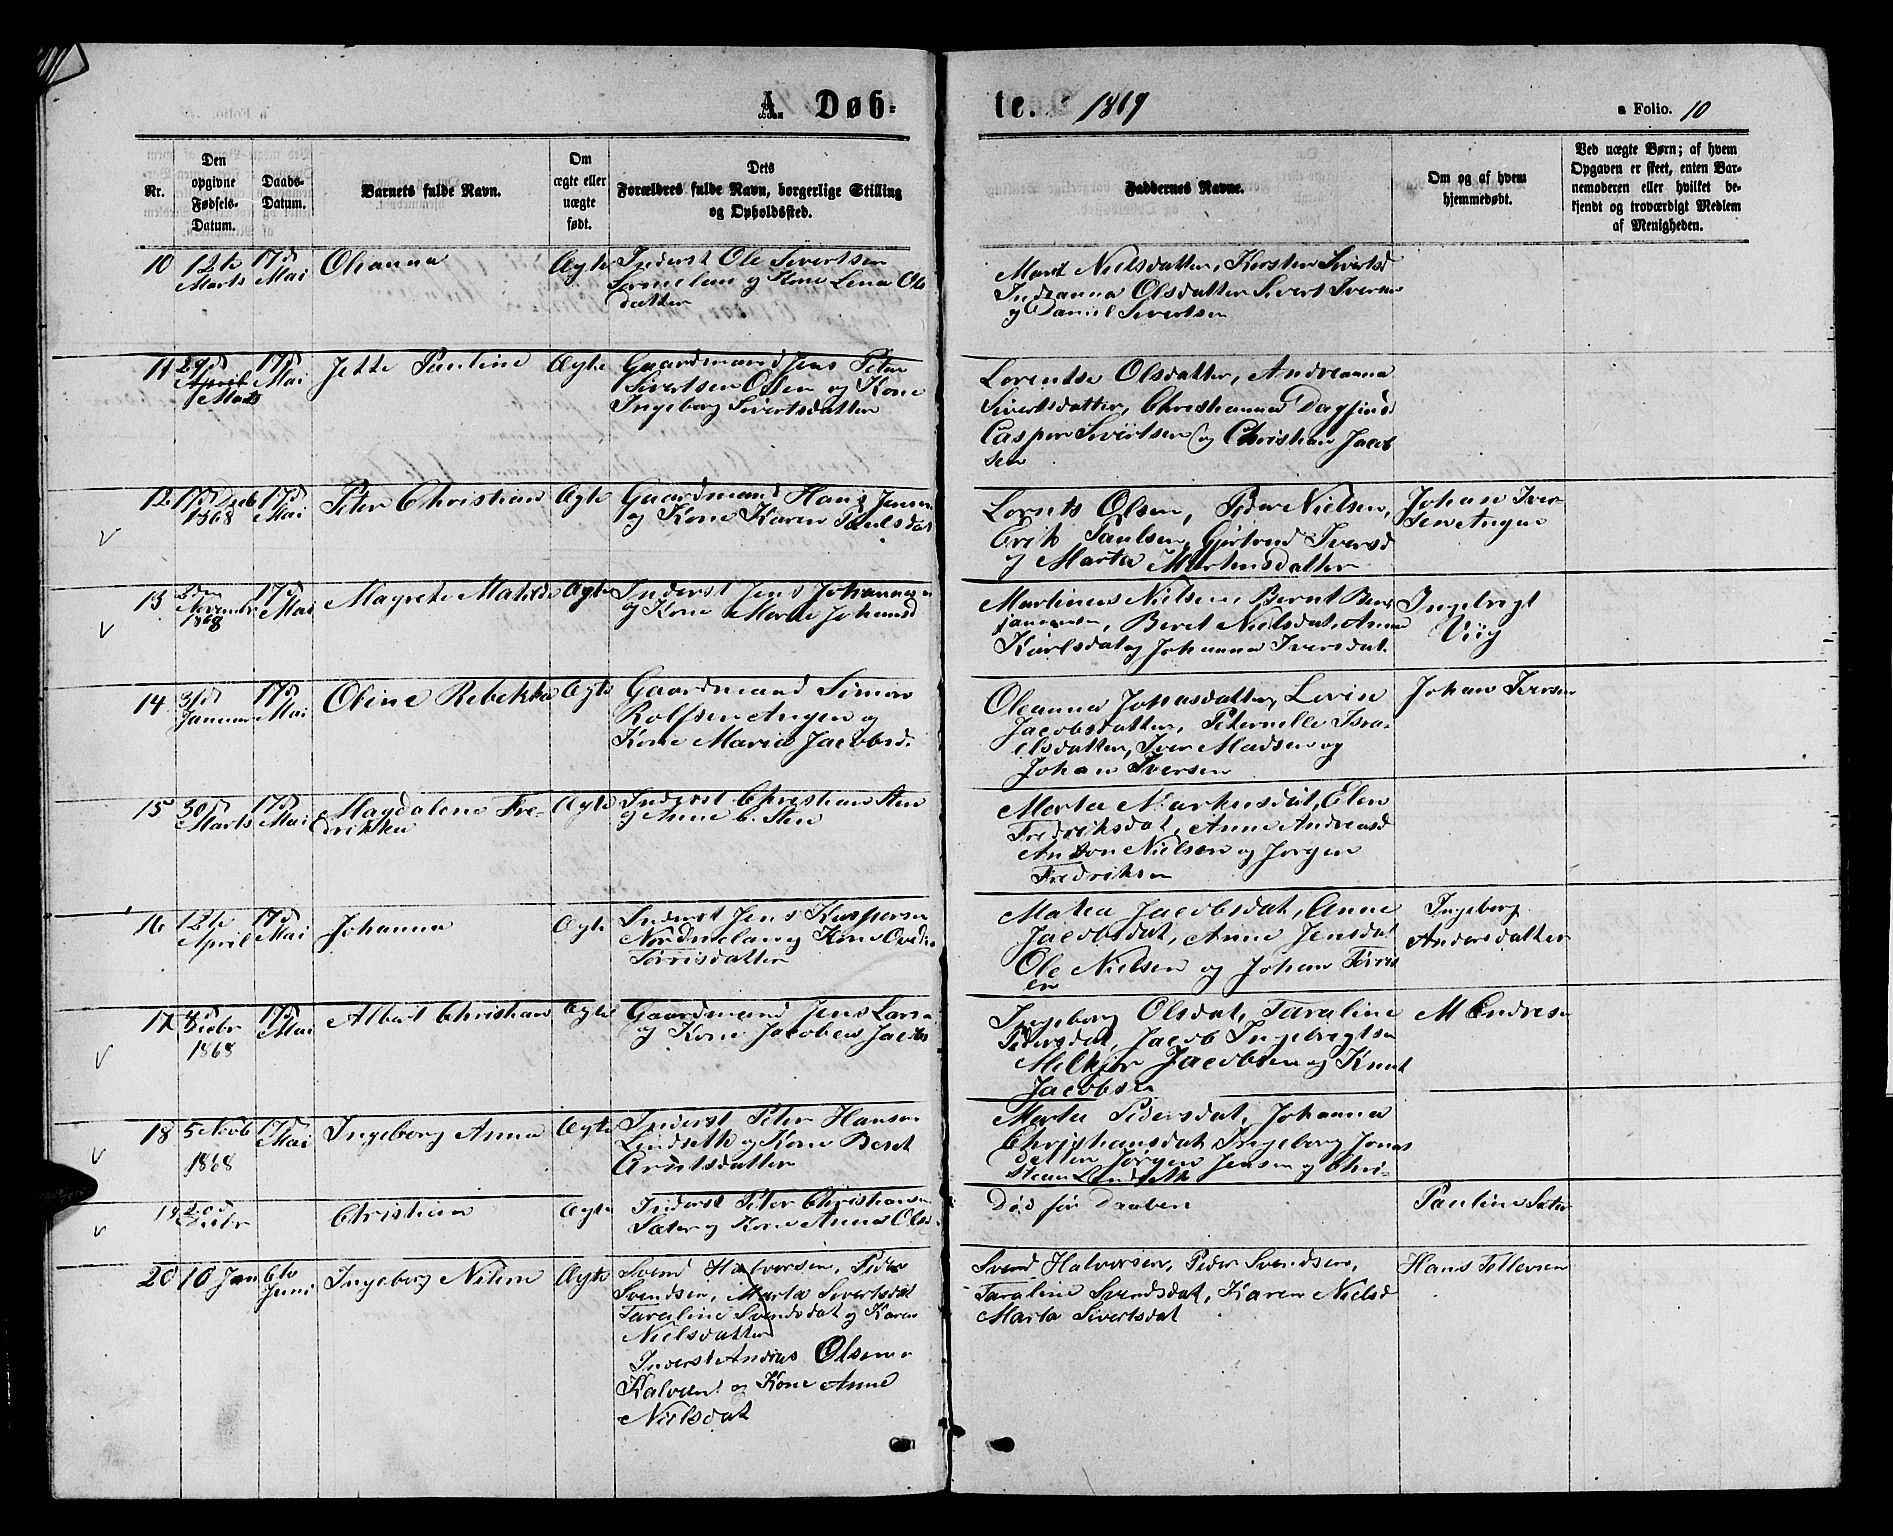 A. Døb-
te. 1869
a Folio. 10
Nr.
Den
opgivne
Fødsels-
Datum.
Daabs-
Datum.
Barnets fulde Navn.
Om
ægte eller
uægte
født.
Dets
Forældres fulde Navn, borgerlige Stilling
og Opholdssted.
Faddernes Navne.
Om og af hvem
hjemmedøbt.
Ved uægte Børn; af hvem
Opgaven er skeet, enten Bar-
nemoderen eller hvilket be-
kjendt og troværdigt Medlem
af Menigheden.
10
12te
Marts
17d
Mai
Oleanna
Ægte
Inderst Ole Sivertsen
og Kone Lena Ols
datter
Marit Nielsdatter, Kirsten Sivertsd
Indianna Olsdatter Sivert Iversen
og Daniel Sivertsen
11
29d
April
Marts
17d
Mai
Jette Pauline
Ægte
Gaardmand Jens Peter
Sivertsen Olsen og Kone
Ingeborg Sivertsdatter
Lorentse Olsdatter, Andreanna
Sivertsdatter, Christianna Dagfind
Casper Sivertsen og Christian Jacob
sen
12
17d Debr
1868
17d
Mai
Peter Christian
Ægte
Gaardmand Hans Jensen
og Kone Karen Paulsdat
Lornts Olsen, Peder Nielsen,
Erik Paulsen, Gjertrud Iversd
og Marta Mortensdatter
Johan Iver-
sen Angen
13
2den
Novembr
1868
17d
Mai
Magrete Matilde
Ægte
Inderst Jens Johannesen
og Kone Merle Johansd
Martinus Nielsen, Bernt Ben
jaminsen, Beret Nielsdat, Anne
Karlsdat og Johanna Iversdat.
Ingebrigt
Viig
14
31d
Januar
17d
Mai
Oline Rebekka
Ægte
Gaardmand Simon
Rolfsen Angen og
Kone Maria Jacobsd.
Oleanna Johasdatter, Lovise
Jacobsdatter, Peternelle Isra-
elsdatter, Iver Madsen og
Johan Iversen
Johan Iversen
15
30d
Marts
17d
Mai
Magdalene Fre-
drikka
Ægte
Inderst Christian Sten
og Anne C. Sten
Merta Markusdat, Elen
Fredriksdat, Anne Andreasd
Anton Nielsen og Jørgen
Fredriksen
16
12te
April
17d
Mai
Johanna
Ægte
Inderst Jens Kaspersen
Nordmelan og Kone
Tørrisdatter
Matea Jacobsdat, Anne
Jacobsdat, Anne Jensdat
Ole Nielsen og Johan Tørris
en
Ingeborg
Andersdatter
17
4d
Debr
1868
17d
Mai
Albert Christian
Ægte
Gaardmand Jens Larsen
og Kone Jacobea Jacobs
Ingeborg Olsdat, Taraline
Pedersdat, Jacob Ingebrigtsen
Melkjør Jacobsen og Knut
Jacobsen
M Endresen
18
5 Novb
1868
17d
Mai
Ingeborg Anna
Ægte
Inderst Peter Hansen
Lindseth og Kone Beret
Arntsdatter
Marta Pedersdat, Johanna
Christiansdat, Ingeborg Jonas
datter Jørgen Jensen og Chri-
stian Lindseth
19
20d
Debr
Christian
Ægte
Inderst Peter Christiansen
Sæter og Kone Anna Olsd
Død før Daaben
Pauline Sæter
20
10 Jan
6te
Juni
Ingeborg Niline
Ægte
Svend Halvorsen, Peder
Svendsen, Marta Sivertsdat
Taraline Svendsdat og Karen
Nielsdatter
Inderst Andreas Olsen
Kalven og Kone Anne
Nielsdat
Svend Halvorsen, Peder Svendsen,
Taraline Svendsdat, Karen Nielsd
Marta Sivertsdat
Hans Tellevsen